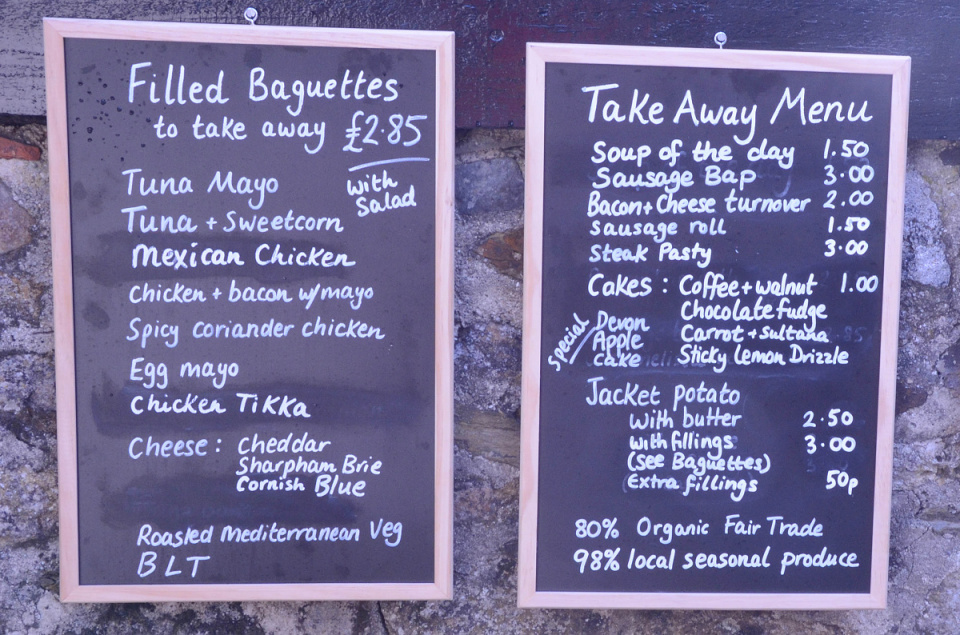 Filled Baguettes
to take away £2.85
with Salad
Tuna Mayo
Tuna + Sweetcorn
Mexican Chicken
Chicken + bacon w/mayo
Spicy coriander chicken
Egg mayo
Chicken Tikka
Cheese : Cheddar
Sharpham Brie
Cornish Blue
Roasled Mediterranean Veg
BLT
Take Away Menu
Soup of the day 1.50
Sausage Bap 3.00
Bacon + Cheese turnover 2.00
Sausage roll 1.50
Steak Pasty 3.00
Cakes : Coffee + walnut 1.00
Chocolate fudge
Carrot + sultana
Sticky Lemon Drizzle
Special Devon
Apple
cake
Jacket potato
with butter 2.50
with fillings 3.00
(see Baguettes)
Extra fillings 50p
80% Organic Fair Trade
98% local seasonal produce